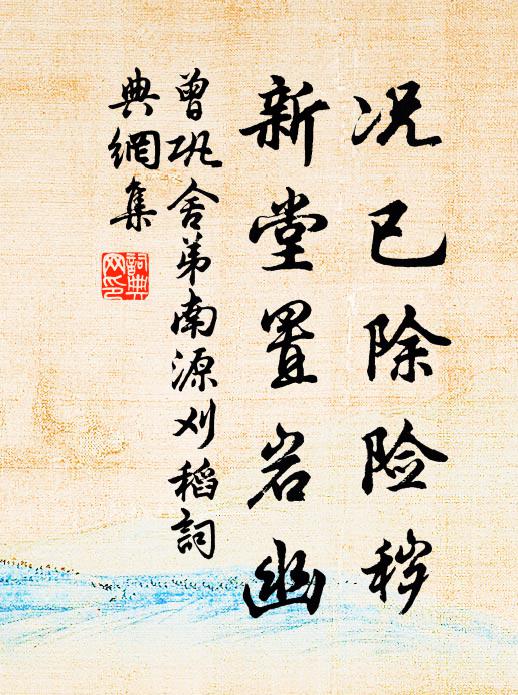 况已除险秽
新堂置岩幽
曾巩舍弟南源刈稻詞
典網集
詞典网印